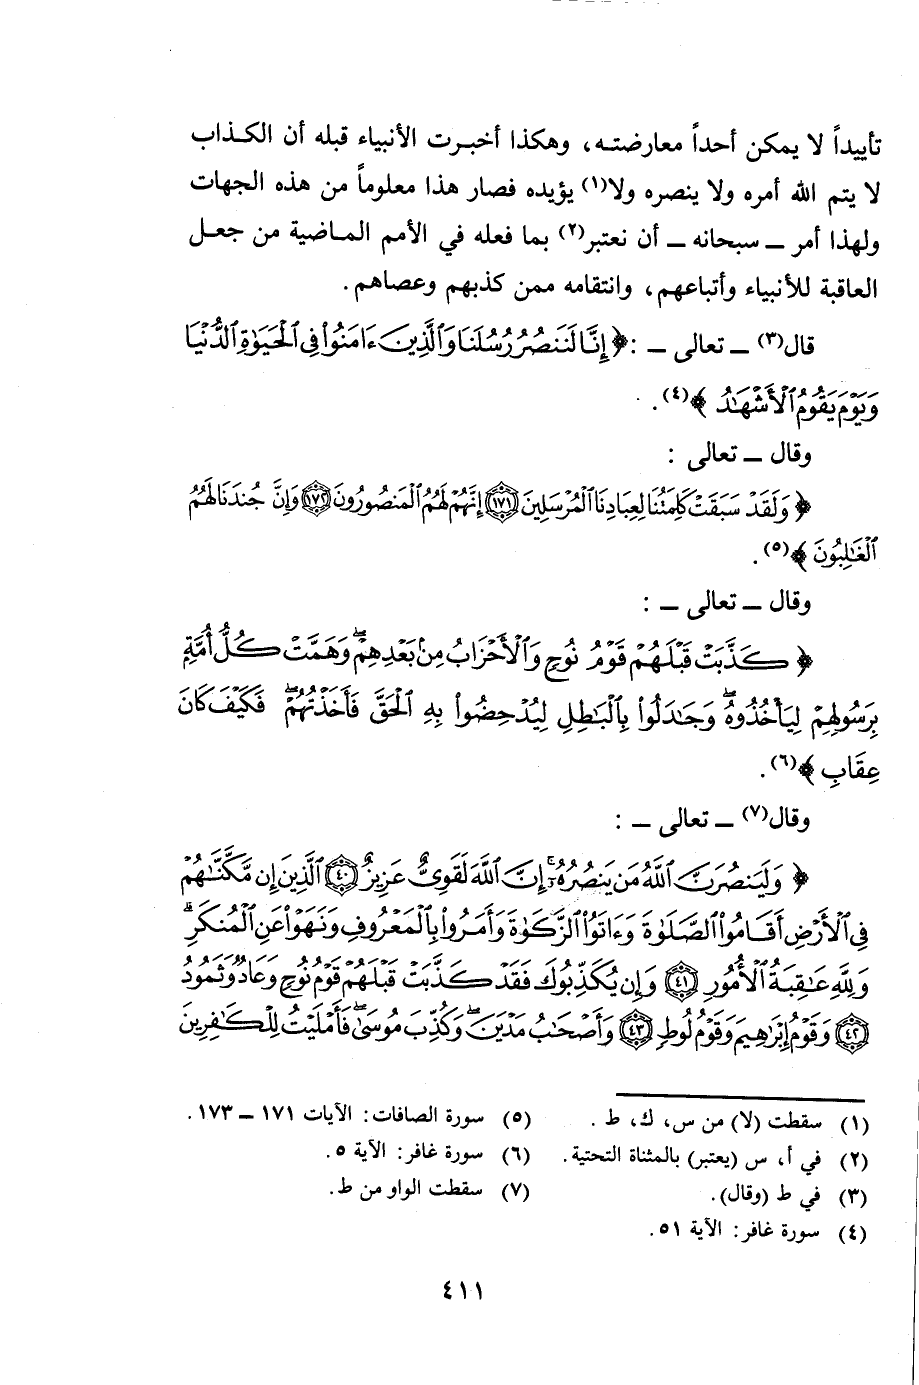 تأييداً لا يمكن أحداً معارضته، وهكذا أخبرت الأنبياء قبله أن الكذاب
لا يتم الله أمره ولا ينصره ولا(١) يؤيده فصار هذا معلوماً من هذه الجهات
ولهذا أمر – سبحانه – أن نعتبر(٢) بما فعله في الأمم الماضية من جعل
العاقبة للأنبياء وأتباعهم، وانتقامه ممن كذبهم وعصاهم.
قال(٣) – تعالى – : ﴿ إِنَّا لَنَنصُرُ رُسُلَنَا وَٱلَّذِينَ ءَامَنُوا۟ فِى ٱلْحَيَوٰةِ ٱلدُّنْيَا
وَيَوْمَ يَقُومُ ٱلْأَشْهَٰدُ ﴾(٤).
وقال – تعالى :
﴿ وَلَقَدْ سَبَقَتْ كَلِمَتُنَا لِعِبَادِنَا ٱلْمُرْسَلِينَ ١٧١ إِنَّهُمْ لَهُمُ ٱلْمَنصُورُونَ ١٧٢ وَإِنَّ جُندَنَا لَهُمُ
ٱلْغَٰلِبُونَ ﴾(٥).
وقال – تعالى – :
﴿ كَذَّبَتْ قَبْلَهُمْ قَوْمُ نُوحٍ وَٱلْأَحْزَابُ مِنۢ بَعْدِهِمْ ۖ وَهَمَّتْ كُلُّ أُمَّةٍۭ
بِرَسُولِهِمْ لِيَأْخُذُوهُ ۖ وَجَٰدَلُوا۟ بِٱلْبَٰطِلِ لِيُدْحِضُوا۟ بِهِ ٱلْحَقَّ فَأَخَذْتُهُمْ ۖ فَكَيْفَ كَانَ
عِقَابِ ﴾(٦).
وقال(٧) – تعالى – :
﴿ وَلَيَنصُرَنَّ ٱللَّهُ مَن يَنصُرُهُۥٓ ۗ إِنَّ ٱللَّهَ لَقَوِىٌّ عَزِيزٌ ٤٠ ٱلَّذِينَ إِن مَّكَّنَّٰهُمْ
فِى ٱلْأَرْضِ أَقَامُوا۟ ٱلصَّلَوٰةَ وَءَاتَوُا۟ ٱلزَّكَوٰةَ وَأَمَرُوا۟ بِٱلْمَعْرُوفِ وَنَهَوْا۟ عَنِ ٱلْمُنكَرِ ۗ
وَلِلَّهِ عَٰقِبَةُ ٱلْأُمُورِ ٤١ وَإِن يُكَذِّبُوكَ فَقَدْ كَذَّبَتْ قَبْلَهُمْ قَوْمُ نُوحٍ وَعَادٌ وَثَمُودُ
٤٢ وَقَوْمُ إِبْرَٰهِيمَ وَقَوْمُ لُوطٍ ٤٣ وَأَصْحَٰبُ مَدْيَنَ ۖ وَكُذِّبَ مُوسَىٰ ۖ فَأَمْلَيْتُ لِلْكَٰفِرِينَ
(١) سقطت (لا) من س، ك، ط .
(٢) في أ، س (يعتبر) بالمثناة التحتية.
(٣) في ط (وقال).
(٤) سورة غافر: الآية ٥١.
(٥) سورة الصافات: الآيات ١٧١ – ١٧٣.
(٦) سورة غافر: الآية ٥.
(٧) سقطت الواو من ط.
٤١١